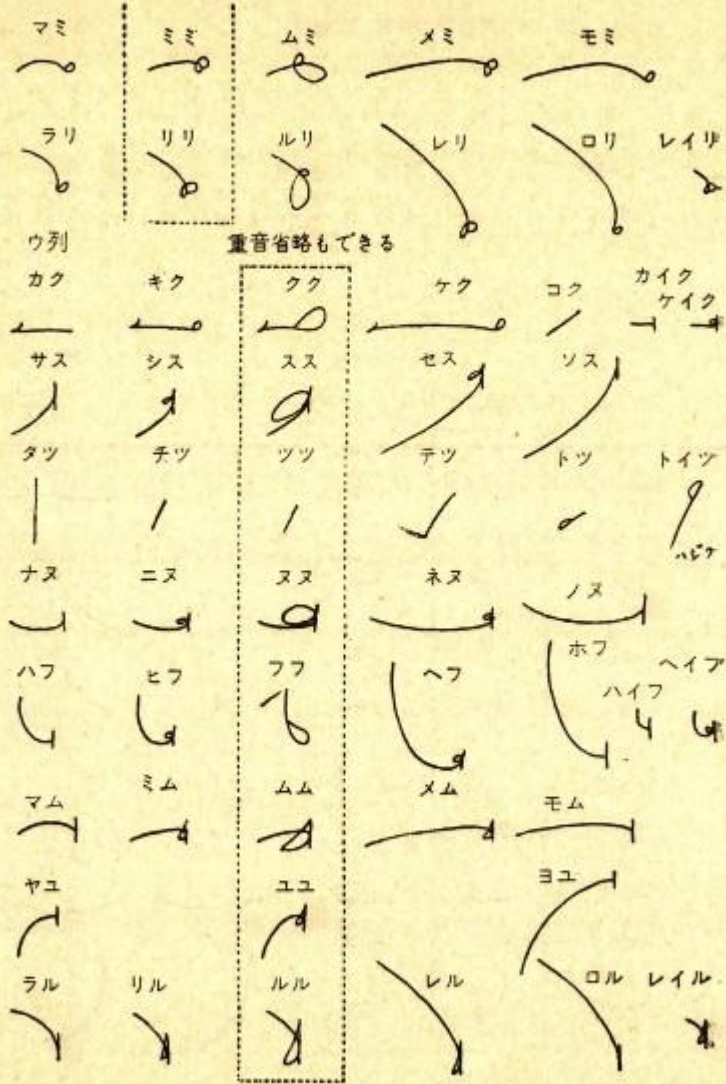 マミ ミミ ムミ メミ モミ
ラリ リリ ルリ レリ ロリ レイリ
ウ列 重音省略もできる
カク キク クク ケク コク カイク
ケイク
サス シス スス セス ソス
タツ チツ ツツ テツ トツ トイツ
ナヌ ニヌ ヌヌ ネヌ ノヌ
ハフ ヒフ フフ ヘフ ホフ ヘイフ
ハイフ
マム ミム ムム メム モム
ヤユ ユユ ヨユ
ラル リル ルル レル ロル レイル